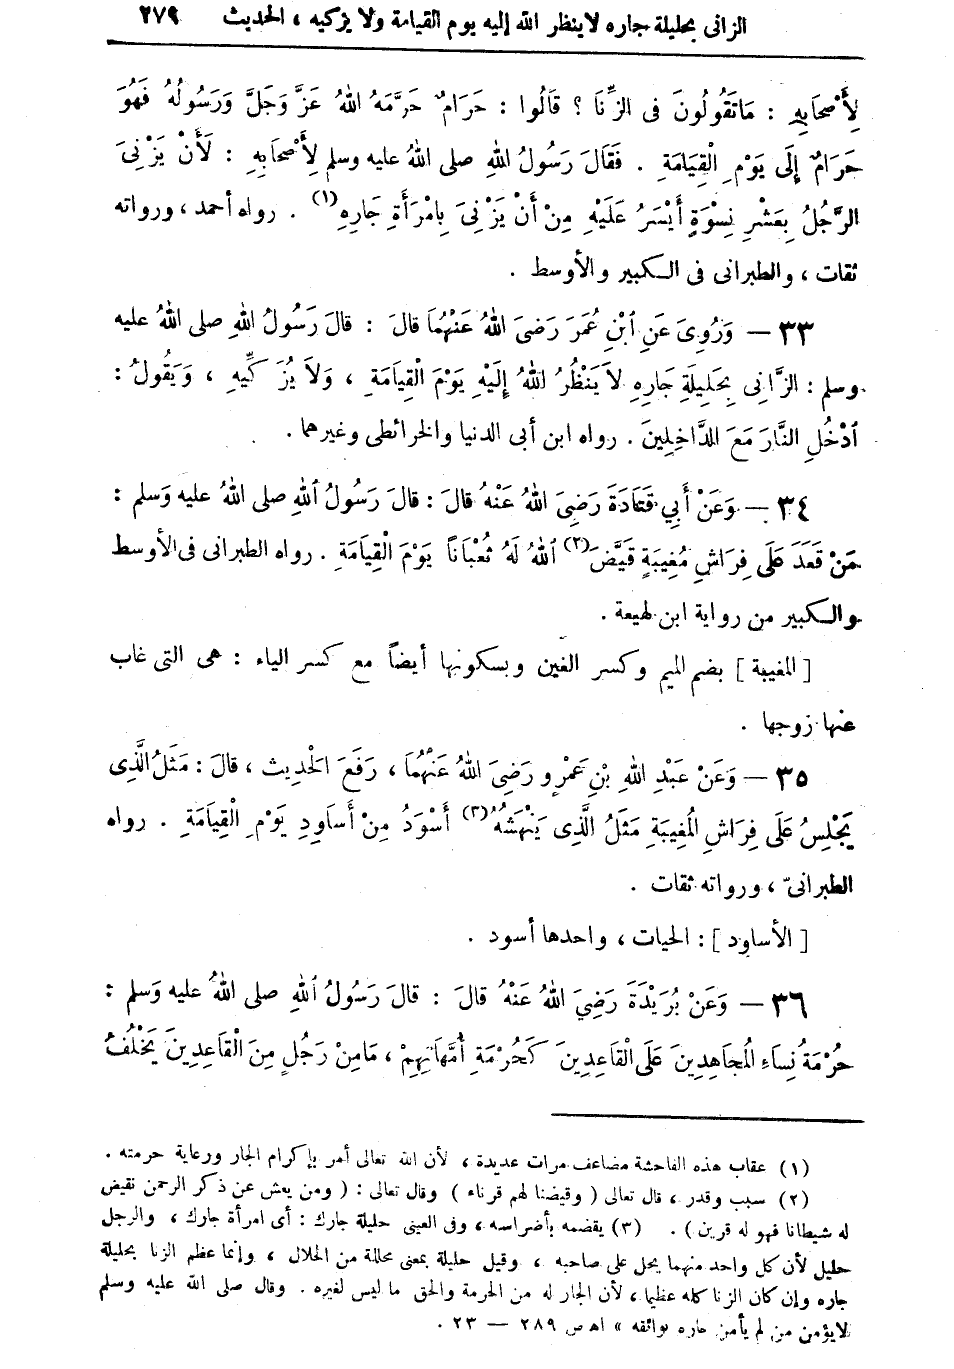 الزانى بحليلة جاره لا ينظر الله إليه يوم القيامة ولا يزكيه ، الحديث ٢٧٩
لِأَصْحَابِهِ : مَاتَقُولُونَ فى الزِّنَا ؟ قَالُوا : حَرَامٌ حَرَّمَهُ اللهُ عَزَّ وَجَلَّ وَرَسُولُهُ فَهُوَ
حَرَامٌ إِلَى يَوْمِ الْقِيَامَةِ . فَقَالَ رَسُولُ اللهِ صلى اللهُ عليه وسلم لِأَصْحَابِهِ : لَأَنْ يَزْنِىَ
الرَّجُلُ بِعَشْرِ نِسْوَةٍ أَيْسَرُ عَلَيْهِ مِنْ أَنْ يَزْنِىَ بِامْرَأَةِ جَارِهِ(١) . رواه أحمد ، ورواته
ثقات ، والطبرانى فى الكبير والأوسط .
٣٣ — وَرُوِىَ عَنِ ابْنِ عُمَرَ رَضِىَ اللهُ عَنْهُمَا قالَ : قالَ رَسُولُ اللهِ صلى اللهُ عليه
وسلم : الزَّانِى بِحَلِيلَةِ جَارِهِ لاَ يَنْظُرُ اللهُ إِلَيْهِ يَوْمَ الْقِيَامَةِ ، وَلاَ يُزَكِّيهِ ، وَيَقُولُ :
ادْخُلِ النَّارَ مَعَ الدَّاخِلِينَ . رواه ابن أبى الدنيا والخرائطى وغيرهما .
٣٤ — وَعَنْ أَبِي قَتَادَةَ رَضِىَ اللهُ عَنْهُ قالَ : قالَ رَسُولُ اللهِ صلى اللهُ عليه وَسلم :
مَنْ قَعَدَ عَلَى فِرَاشِ مُغِيبَةٍ قَيَّضَ(٢) اللهُ لَهُ ثُعْبَاناً يَوْمَ الْقِيَامَةِ . رواه الطبرانى فى الأوسط
والكبير من رواية ابن لهيعة .
[ المغيبة ] بضم الميم وكسر الغين وبسكونها أيضاً مع كسر الياء : هى التى غاب
عنها زوجها .
٣٥ — وَعَنْ عَبْدِ اللهِ بْنِ عَمْرٍو رَضِىَ اللهُ عَنْهُمَا ، رَفَعَ الحَدِيثَ ، قالَ : مَثَلُ الَّذِى
يَجْلِسُ عَلَى فِرَاشِ الْمُغِيبَةِ مَثَلُ الَّذِى يَنْهَشُهُ(٣) أَسْوَدُ مِنْ أَسَاوِدِ يَوْمِ الْقِيَامَةِ . رواه
الطبرانىّ ، ورواته ثقات .
[ الأساود ] : الحيات ، واحدها أسود .
٣٦ — وَعَنْ بُرَيْدَةَ رَضِيَ اللهُ عَنْهُ قالَ : قالَ رَسُولُ اللهِ صلى اللهُ عليه وَسلم :
حُرْمَةُ نِسَاءِ الْمُجَاهِدِينَ عَلَى الْقَاعِدِينَ كَحُرْمَةِ أُمَّهَاتِهِمْ ، مَامِنْ رَجُلٍ مِنَ الْقَاعِدِينَ يَخْلُفُ
(١) عقاب هذه الفاحشة مضاعف مرات عديدة ، لأن الله تعالى أمر بإكرام الجار ورعاية حرمته .
(٢) سبب وقدر ، قال تعالى ( وقيضنا لهم قرناء ) وقال تعالى : ( ومن يعش عن ذكر الرحمن نقيض
له شيطانا فهو له قرين ) . (٣) يقضمه بأضراسه ، وفى العينى حليلة جارك : أى امرأة جارك ، والرجل
حليل لأن كل واحد منهما يحل على صاحبه ، وقيل حليلة بمعنى محللة من الحلال ، وإنما عظم الزنا بحليلة
جاره وإن كان الزنا كله عظيما ، لأن الجار له من الحرمة والحق ما ليس لغيره . وقال صلى الله عليه وسلم
لا يؤمن من لم يأمن جاره بوائقه » اهـ ص ٢٨٩ — ٢٣ .